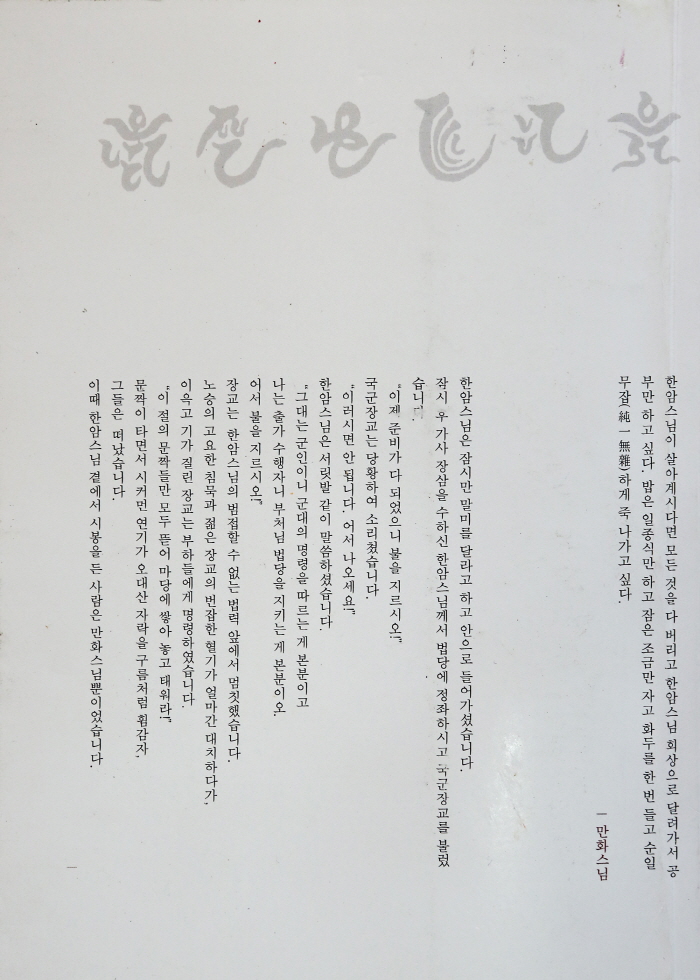 한암스님이 살아계시다면 모든 것을 다 버리고 한암스님 회상으로 달려가서 공
부만 하고 싶다. 밥은 일종식만 하고 잠은 조금만 자고 화두를 한 번 들고 순일
무잡(純一無雜)하게 죽 나가고 싶다.
― 만화스님
한암스님은 잠시만 말미를 달라고 하고 안으로 들어가셨습니다.
잠시 후 가사 장삼을 수하신 한암스님께서 법당에 정좌하시고 국군장교를 불렀
습니다.
“이제 준비가 다 되었으니 불을 지르시오.”
국군장교는 당황하여 소리쳤습니다.
“이러시면 안 됩니다. 어서 나오세요!”
한암스님은 서릿발 같이 말씀하셨습니다.
“그대는 군인이니 군대의 명령을 따르는 게 본분이고
나는 출가 수행자니 부처님 법당을 지키는 게 본분이오.
어서 불을 지르시오!”
장교는 한암스님의 범접할 수 없는 법력 앞에서 멈칫했습니다.
노승의 고요한 침묵과 젊은 장교의 번잡한 혈기가 얼마간 대치하다가,
이윽고 기가 질린 장교는 부하들에게 명령하였습니다.
“이 절의 문짝들만 모두 뜯어 마당에 쌓아 놓고 태워라!”
문짝이 타면서 시커먼 연기가 오대산 자락을 구름처럼 휘감자,
그들은 떠났습니다.
이때 한암스님 곁에서 시봉을 든 사람은 만화스님뿐이었습니다.